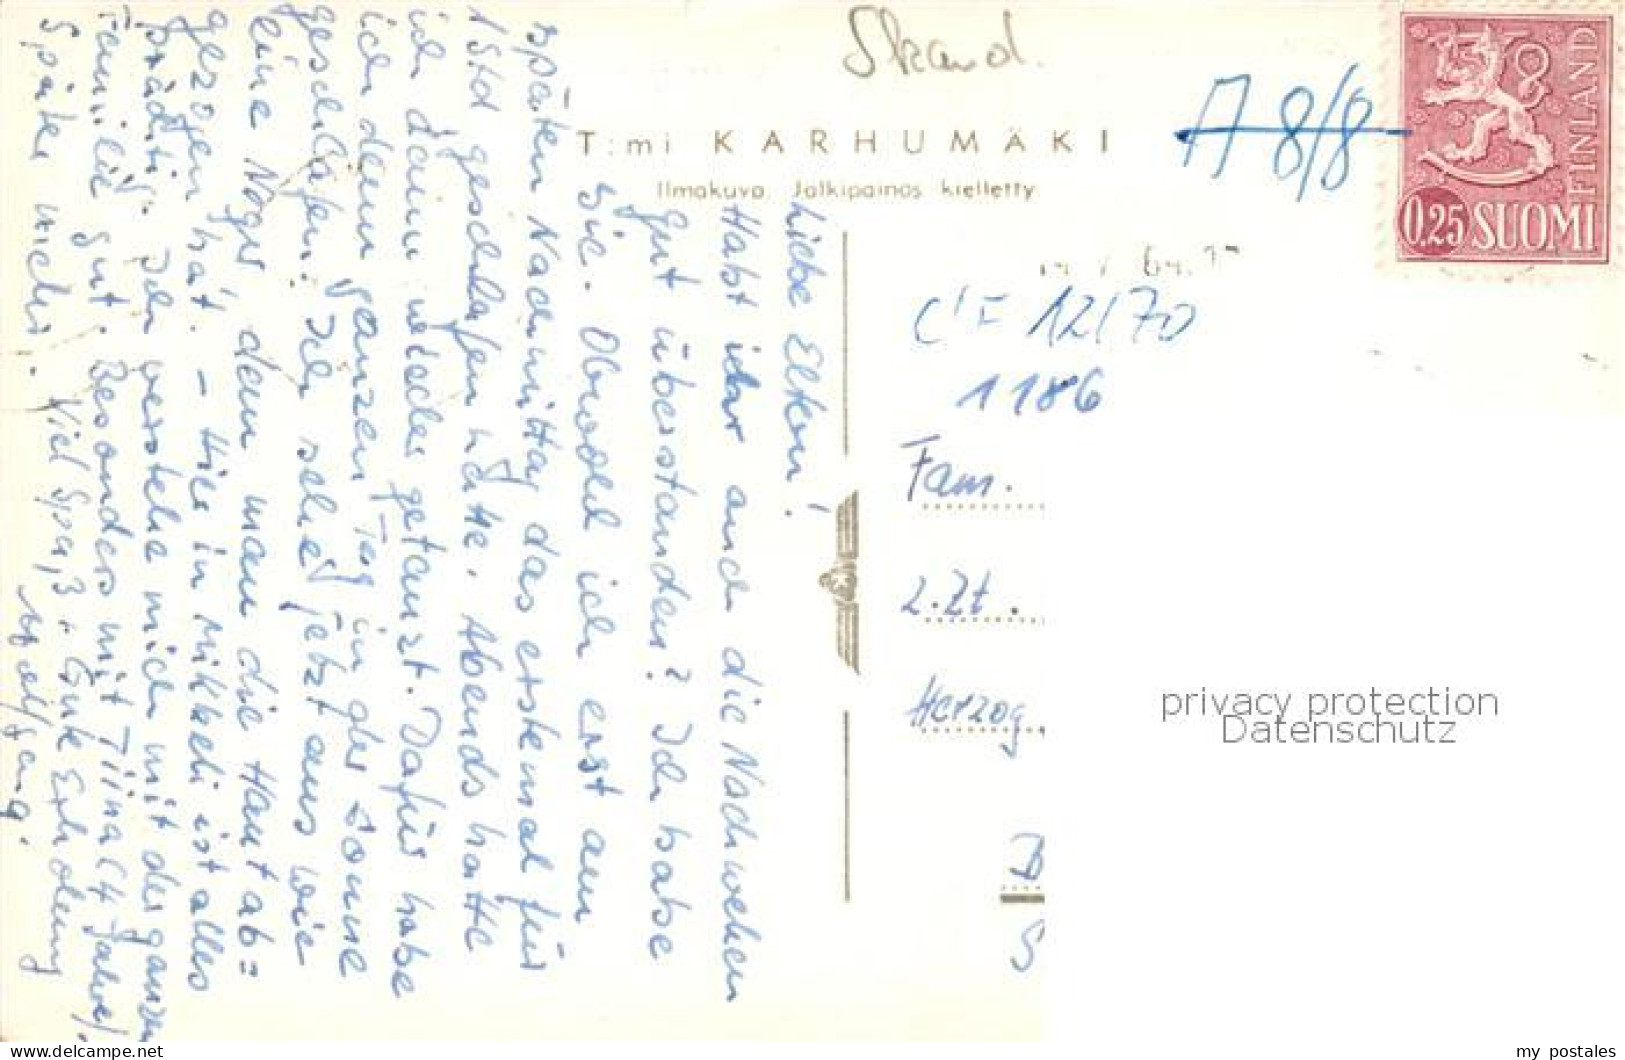 Skand.
A 8/8
FINLAND
0.25 SUOMI
T:mi KARHUMÄKI
Ilmakuva. Jälkipainos kielletty.
64
12/70
1186
Fam.
z.Zt.
Herzog
Liebe Eltern!
Habt ihr auch die Nachwehen
gut überstanden? Ich habe
sie. Obwohl ich erst am
späten Nachmittag das erstemal für
1 Std geschlafen hatte. Abends hatte
ich dann wieder getanzt. Dafür habe
ich denn ganzen Tag in der Sonne
geschlafen. Ich sehe jetzt aus wie
eine Neger, dem man die Haut ab=
gezogen hat. - Hier in Mikkeli ist alles
prächtig. Ich verstehe mich mit der ganzen
Familie gut. Besonders mit Tiina (4 Jahre).
Später mehr. Viel Spaß + Gute Erholung
Wolfgang.
privacy protection
Datenschutz
my postales
https://www.delcampe.net/de/sammlerobjekte/store/my_postales